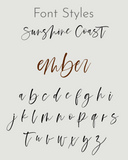 Font Styles
Sunshine Coast
ember
a b c d e f g h i
j k l m n o p q r s
t u v w x y z